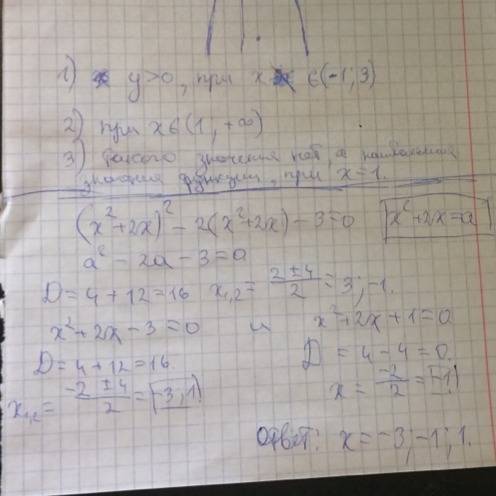 1) y>0, при x ∈(-1;3)
2) при x∈(1; +∞)
3) такого значения нет, а наибольшее
значение функции, при x=1.
(x²+2x)² - 2(x²+2x) - 3=0 x²+2x=a
a² - 2a - 3=0
D=4+12=16 x₁,₂= (2±4)/2 =3; -1.
x²+2x-3=0 и x²+2x+1=0
D=4+12=16. D = 4-4=0.
x₁,₂= (-2±4)/2 = -3; 1. x= -2/2 = -1.
Ответ: x=-3; -1; 1.